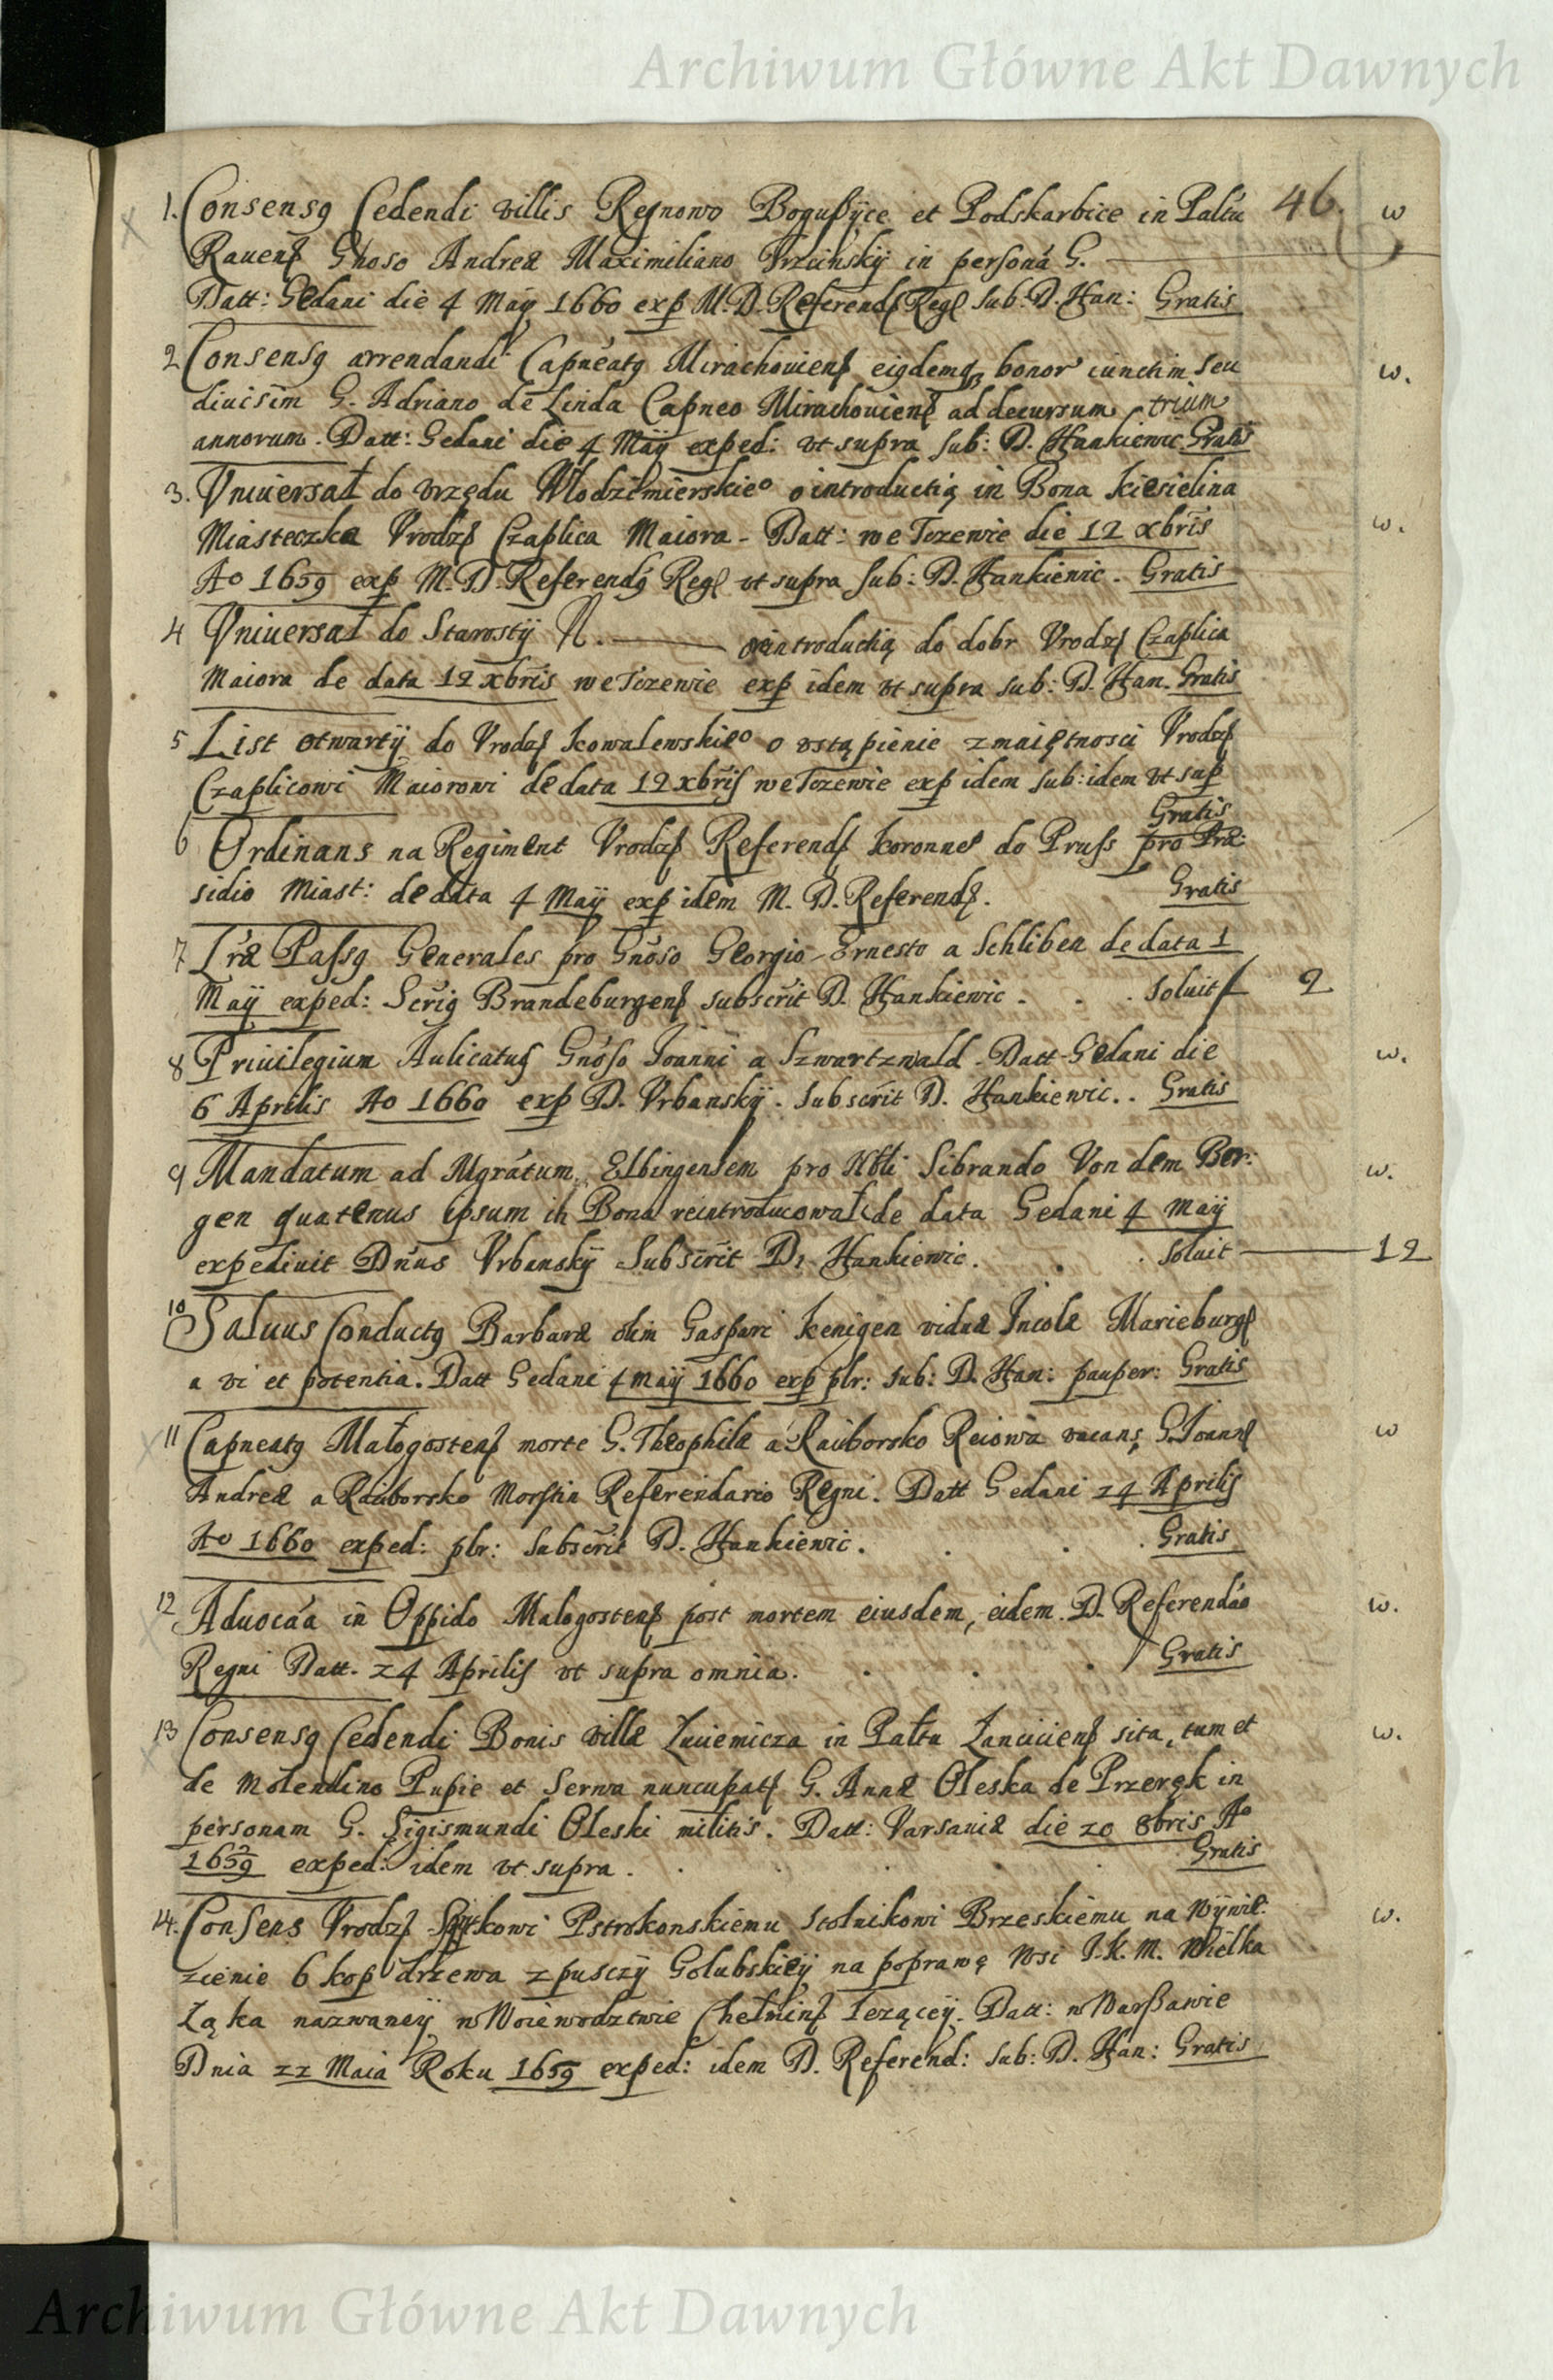 Archiwum Główne Akt Dawnych
46.
1. Consensq Cedendi villis Regnowo Bogußÿce et Podskarbice in Paltu w
Rauens Gnoso Andreæ Maximiliano Trzcinskÿ in personá G.
Datt: Gedani die 4 Maÿ 1660 exp M. D. Referends Regl sub: D. Han: Gratis
2 Consensq arrendandi Capneatq Mirachouiens eiqdemq bonor iunctim seu w.
diuisim G. Adriano de Linda Capneo Mirachouiens ad decursum trium
annorum. Datt: Gedani die 4 Maÿ exped: vt supra sub: D. Hankiewic Gratis
3. Vniuersał do vrzędu Włodzimierskieo o introductią in Bona Kisielina
Miasteczka Vrodzs Czaplica Maiora - Datt: we Tczewie die 12 xbris w.
Ao 1659 exp M. D. Referendq Regl vt supra sub: D. Hankiewic. Gratis
4 Vniuersał do Starostÿ N. — introductią do dobr Vrodzs Czaplica
Maiora de data 12 xbris we Tczewie exp idem vt supra sub: D. Han. Gratis
5 List otwartÿ do Vrodzs Kowalewskieo o vstąpienie z maiętnosci Vrodzs
Czaplicowi Maiorowi de data 12 xbris we Tczewie exp idem sub: idem vt sup
Gratis
6 Ordinans na Regiment Vrodzs Referends Koronneo do Pruss pro Præ:
sidio Miast: de data 4 Maÿ exp idem M. D. Referends. Gratis
7 Lræ Passq Generales pro Gnoso Georgio Ernesto a Schliben de data 1
Maÿ exped: Scriq Brandeburgens subscrit D. Hankiewic . . . soluit f 2
8 Priuilegium Aulicatus Gnoso Joanni a Szwartzwald. Datt Gedani die w.
6 Aprilis Ao 1660 exp D. Vrbanskÿ. Subscrit D. Hankiewic. . Gratis
9 Mandatum ad Mgratum Elbingensem pro Hbli Sibrando Von dem Ber: w.
gen quatenus ipsum in Bona reintroducował de data Gedani 4 Maÿ
expediuit Dnus Vrbanskÿ Subscrit D. Hankiewic. . . soluit — 12
10 Saluus Conductq Barbaræ olim Gaspari Kenigen viduæ Incolæ Marieburgs
a vi et potentia. Datt Gedani 4 Maÿ 1660 exp plr: sub: D. Han: pauper: Gratis
11 Capneatq Małogostens morte G. Theophilæ a Raciborsko Reiowa vacans G. Joanni w
Andreæ a Raciborsko Morstin Referendario Regni. Datt Gedani 24 Aprilis
Ao 1660 exped: plr: Subscrit D. Hankiewic. . . . Gratis
12 Aduocáa in Oppido Malogostens post mortem eiusdem, eidem D. Referendáo w.
Regni Datt. 24 Aprilis vt supra omnia. . . . Gratis
13 Consensq Cedendi Bonis villæ in Paltu Lanciciens sita, tum et w.
de Molendino Pupie et Serwa nuncupats G. Annæ Oleska de Przeręk in
personam G. Sigismundi Oleski militis. Datt: Varsauiæ die 20 8bris Ao
1659 exped: idem vt supra. . . . . Gratis
14. Consens Vrodzs Spÿtkowi Pstrokonskiemu Stolnikowi Brzeskiemu na Wÿwie: w.
zienie 6 kop drzewa z pusczÿ Golubskieÿ na poprawę Wsi J. K. M. Wielka
Łąka nazwaneÿ w Woiewodztwie Chełmins leząceÿ. Datt: w Warßawie
Dnia 22 Maia Roku 1659 exped: idem D. Referend: sub: D. Han: Gratis
Archiwum Główne Akt Dawnych